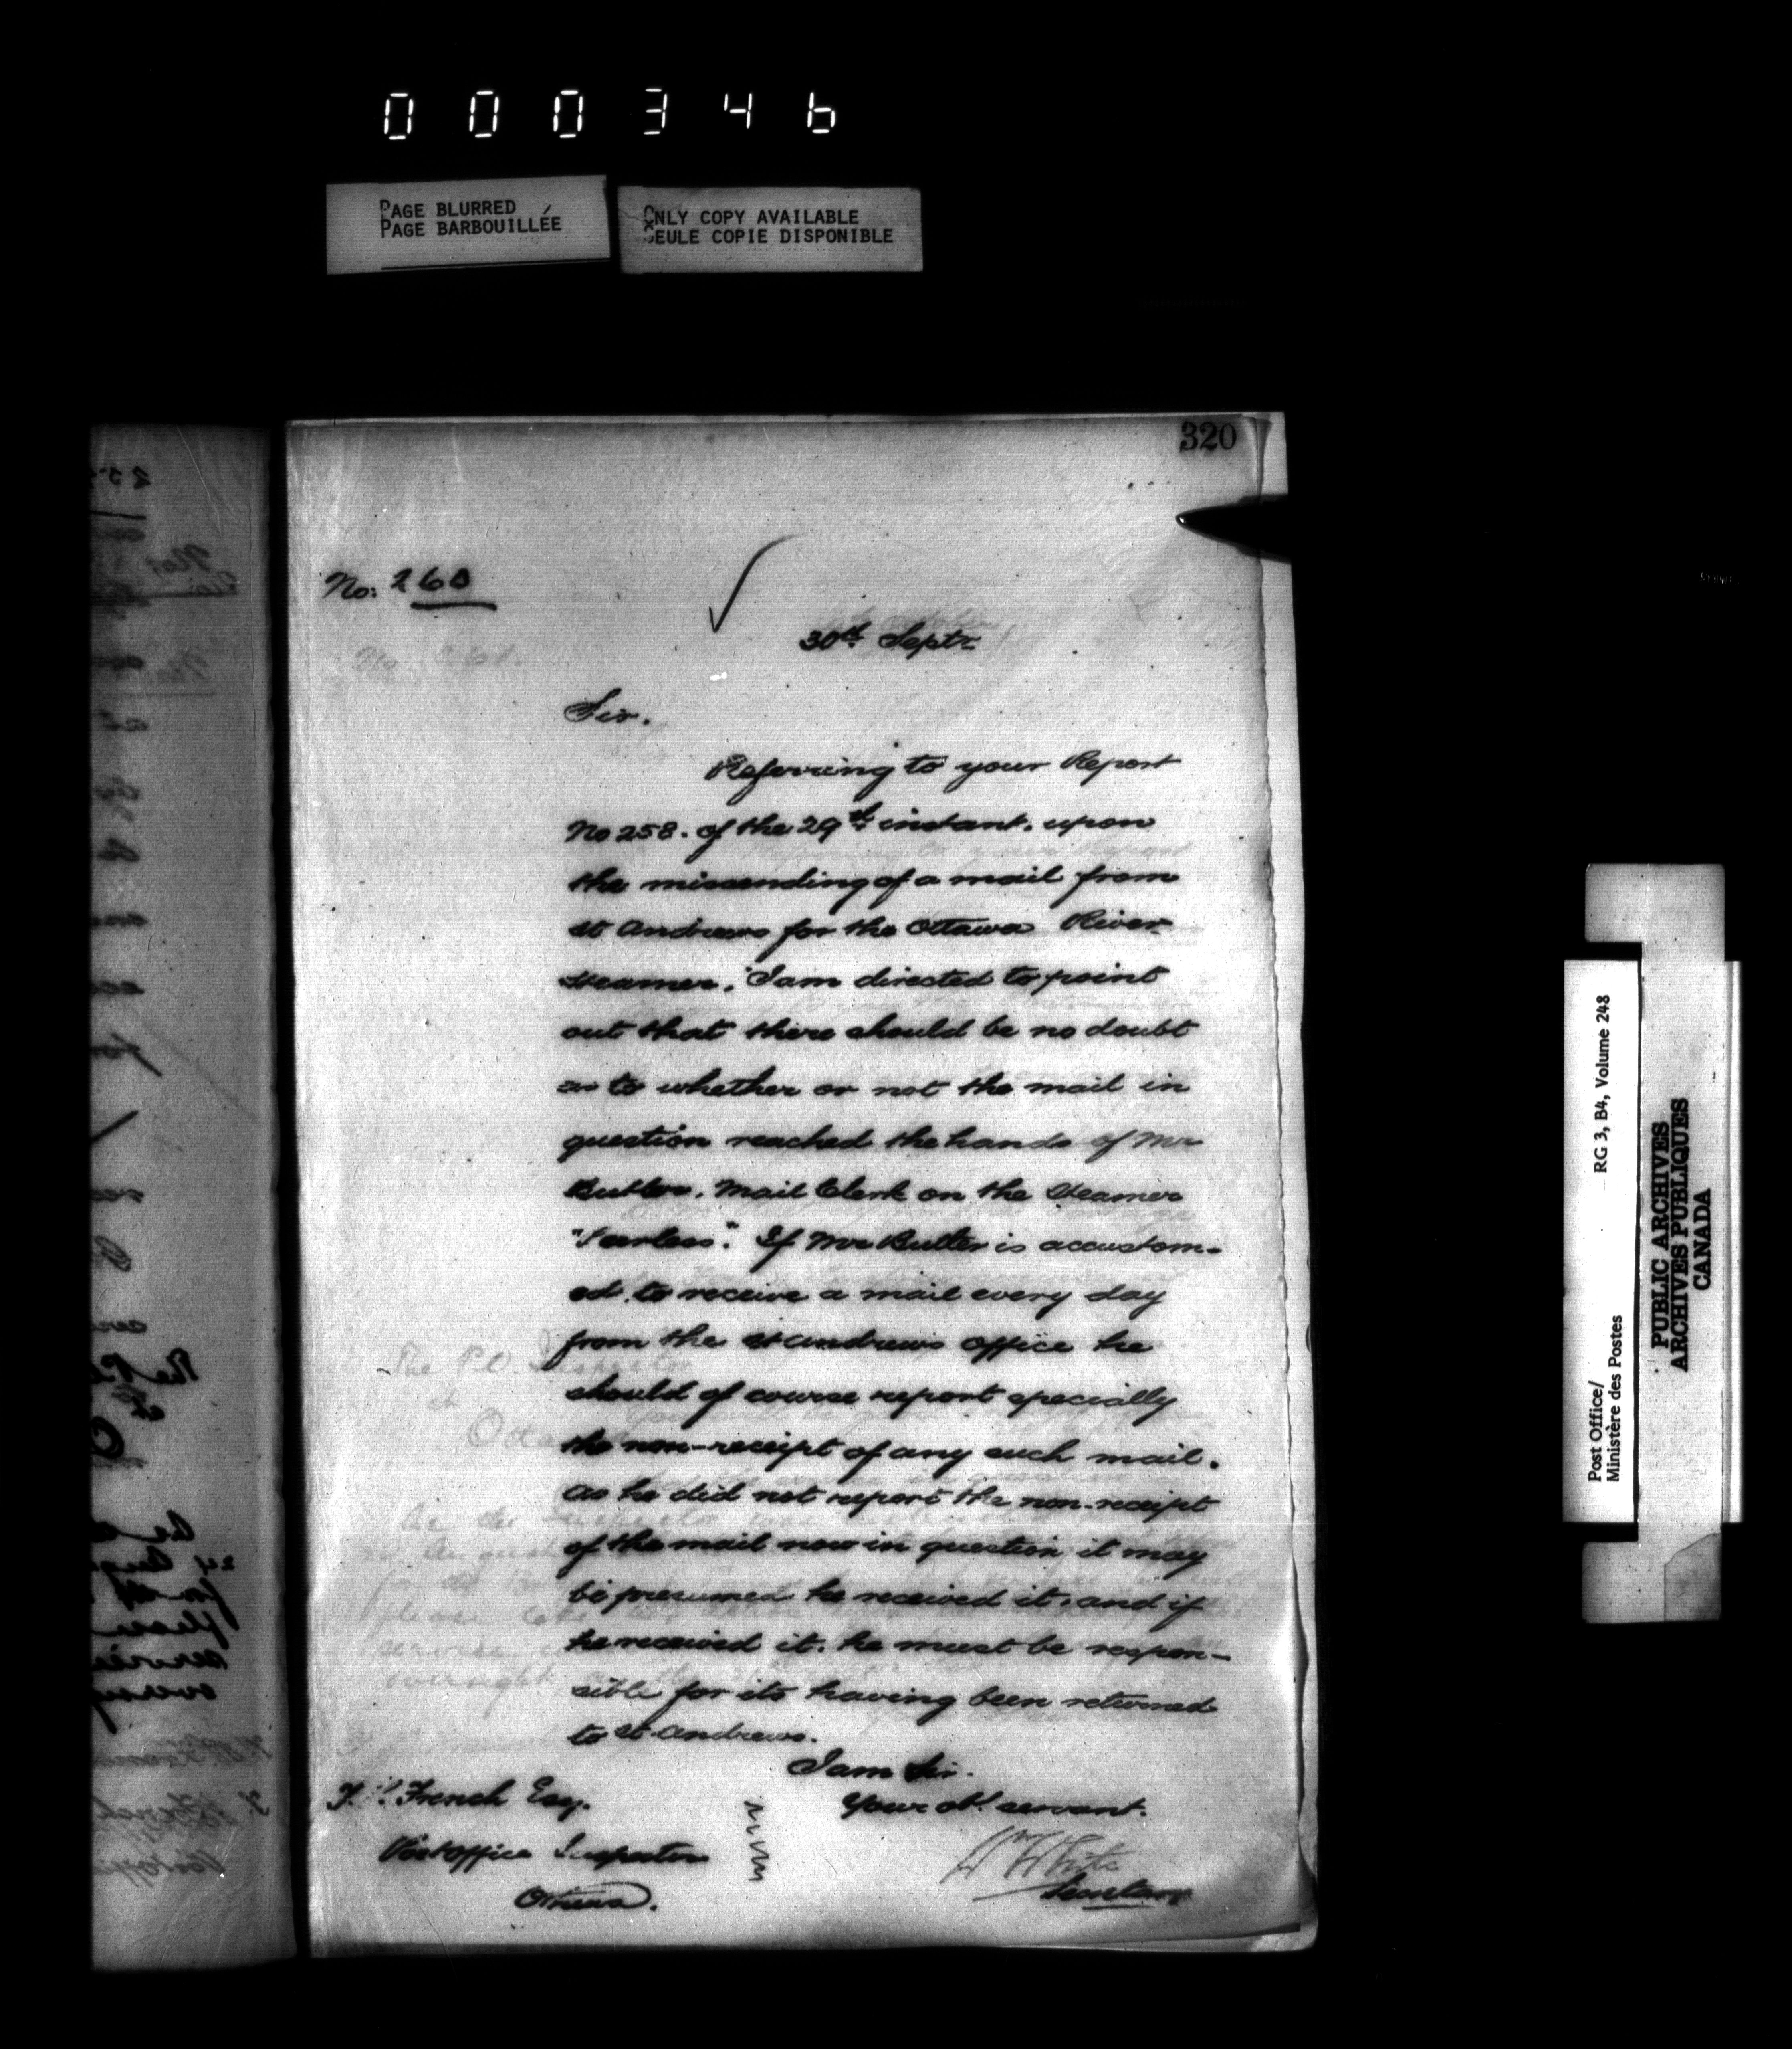 000346
PAGE BLURRED
PAGE BARBOUILLÉE
ONLY COPY AVAILABLE
SEULE COPIE DISPONIBLE
320
No: 260
30th Septr
Sir.
Referring to your Report
No 258. of the 29th instant. upon
the missending of a mail from
St Andrews for the Ottawa River
Steamer. I am directed to point
out that there should be no doubt
as to whether or not the mail in
question reached the hands of Mr
Butler. Mail Clerk on the Steamer
"Peerless". If Mr Butler is accustom-
ed to receive a mail every day
from the St Andrews office he
should of course report specially
the non-receipt of any such mail.
As he did not report the non-receipt
of the mail now in question it may
be presumed he received it, and if
he received it. he must be respon-
sible for its having been returned
to St Andrews.
I am Sir.
Your obt servant.
W White
Secretary
French Esq.
Post Office Inspector
Ottawa.
Post Office/
Ministère des Postes
RG 3, B4, Volume 248
PUBLIC ARCHIVES
ARCHIVES PUBLIQUES
CANADA